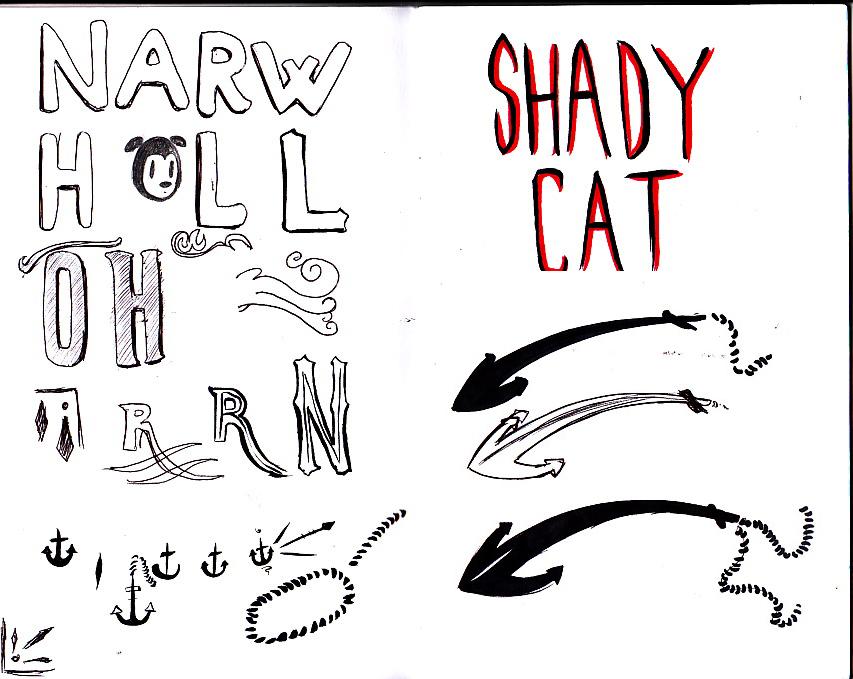 NARW
H LL
OH
R R N
SHADY
CAT